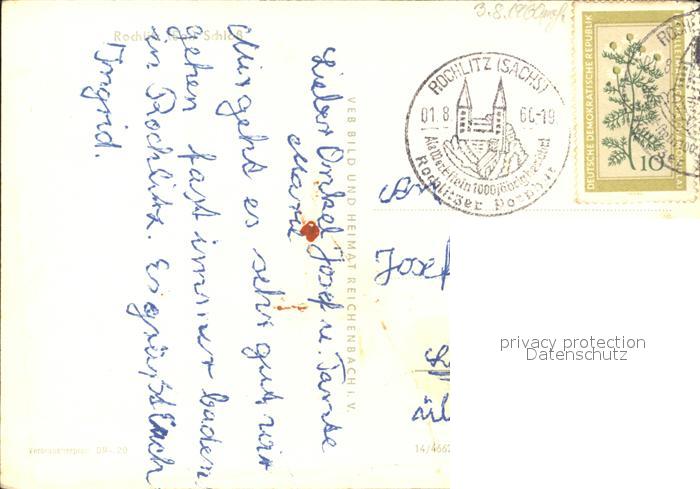 3.8.1960
Rochlitz, Schloß
Lieber Onkel Josef u. Tante
Marie
Mir geht es sehr gut, wir
gehen fast immer baden.
in Rochlitz. Es grüßt Euch
Ingrid.
VEB BILD UND HEIMAT REICHENBACH i. V.
Verbraucherpreis DM -.20
14/466
ROCHLITZ (SACHS)
01.8 60-19
Als Werkstein 1000 jährig bewährt
Rochlitzer Porphyr
DEUTSCHE DEMOKRATISCHE REPUBLIK
10
Josef
privacy protection
Datenschutz